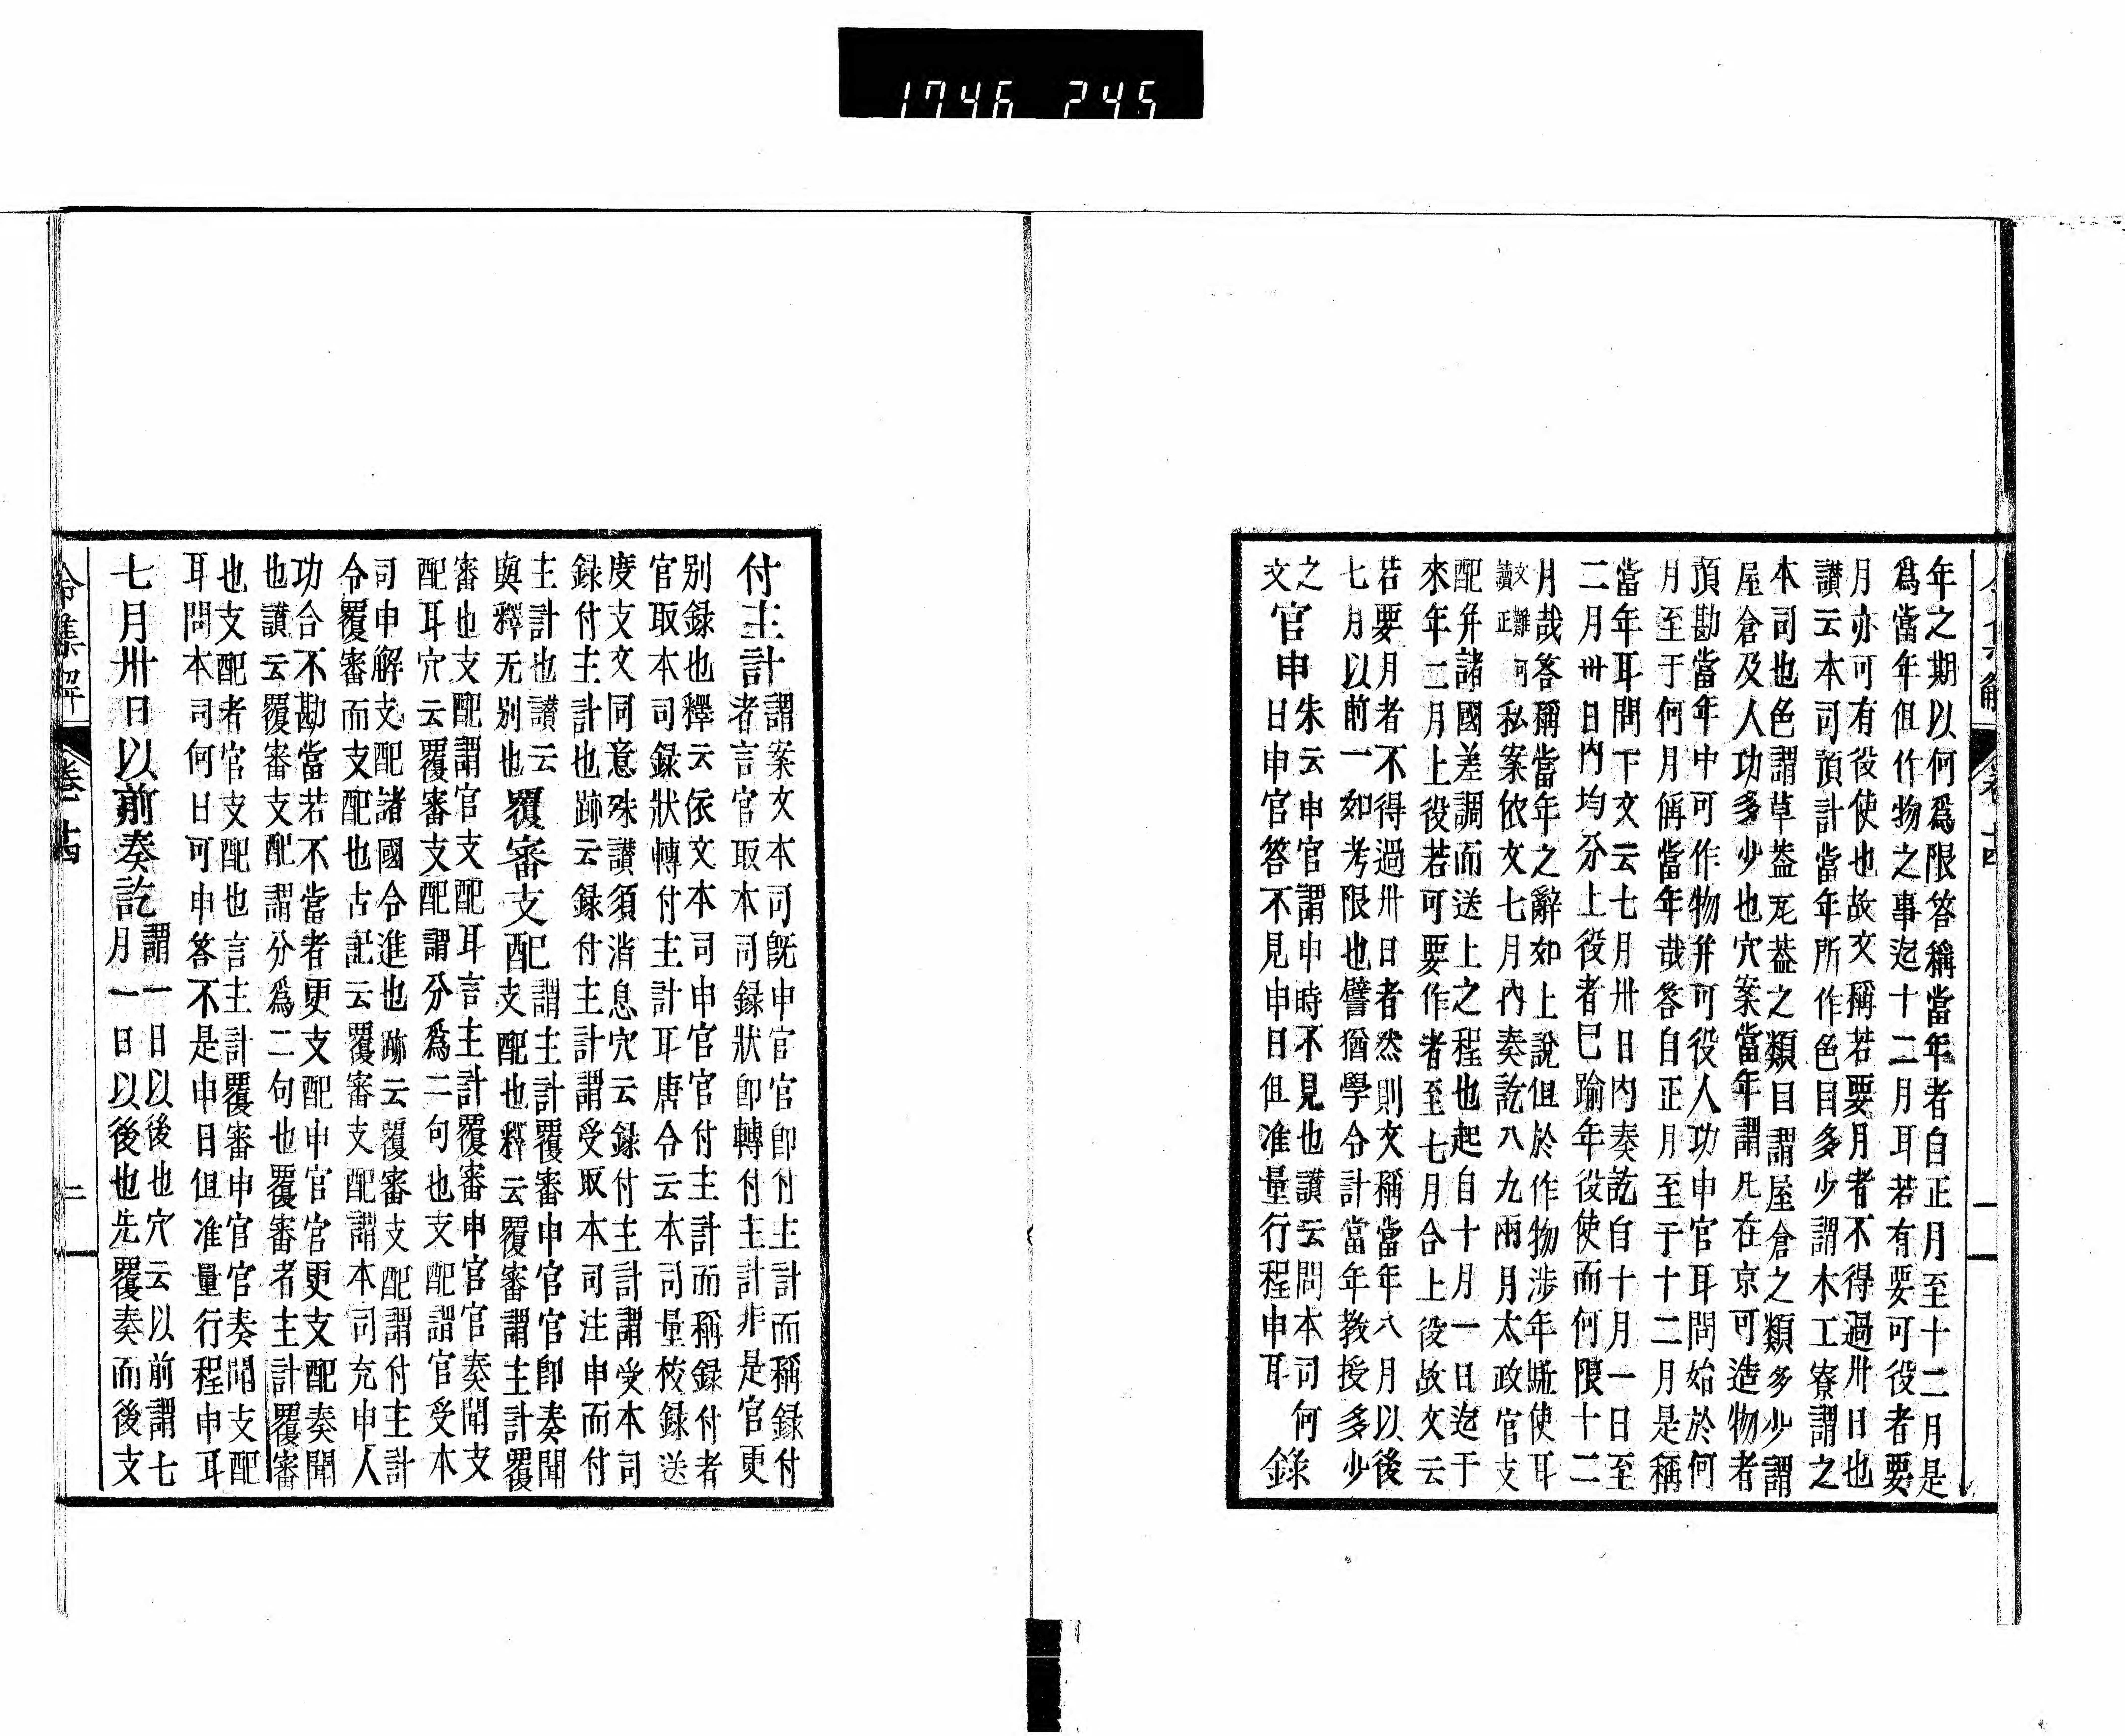 1746 245
年之期以何爲限答稱當年者自正月至十二月是
爲當年但作物之事迄十二月耳若有要可役者要
月亦可有役使也故文稱若要月者不得過卅日也
讃云本司預計當年所作色目多少謂木工寮謂之
本司也色謂草葢瓦葢之類目謂屋倉之類多少謂
屋倉及人功多少也穴案當年謂凡在京可造物者
預勘當年中可作物并可役人功申官耳問始於何
月至于何月偁當年哉答自正月至于十二月是稱
當年耳問下文云七月卅日內奏訖自十月一日至
二月卅日內均分上役者已踰年役使而何限十二
月哉答稱當年之辭如上說但於作物涉年駈使耳
文難何讀正私案依文七月內奏訖八九兩月太政官支
配并諸國差調而送上之程也起自十月一日迄于
來年二月上役若可要作者至七月合上役故文云
若要月者不得過卅日者然則文稱當年八月以後
七月以前一如考限也譬猶學令計當年教授多少
之文
官申
朱云申官謂申時不見也讃云問本司何
日申官答不見申日但准量行程申耳
錄
付主計
謂案文本司旣申官官卽付主計而稱録付
者言官取本司録狀卽轉付主計非是官更
別録也釋云依文本司申官官付主計而稱録付者
官取本司録狀轉付主計耳唐令云本司量校録送
度支文同意殊讃須消息穴云録付主計謂受本司
録付主計也跡云録付主計謂受取本司注申而付
主計也讃云
與釋无別也
覆審支配
謂主計覆審申官官卽奏聞
支配也釋云覆審謂主計覆
審也支配謂官支配耳言主計覆審申官官奏聞支
配耳穴云覆審支配謂分爲二句也支配謂官受本
司申解支配諸國令進也跡云覆審支配謂付主計
令覆審而支配也古記云覆審支配謂本司充申人
功合不勘當若不當者更支配申官官更支配奏聞
也讃云覆審支配謂分爲二句也覆審者主計覆審
也支配者官支配也言主計覆審申官官奏聞支配
耳問本司何日可申答不是申日但准量行程申耳
七月卅日以前奏訖
謂一日以後也穴云以前謂七
月一日以後也先覆奏而後支
令集解 卷十四 二